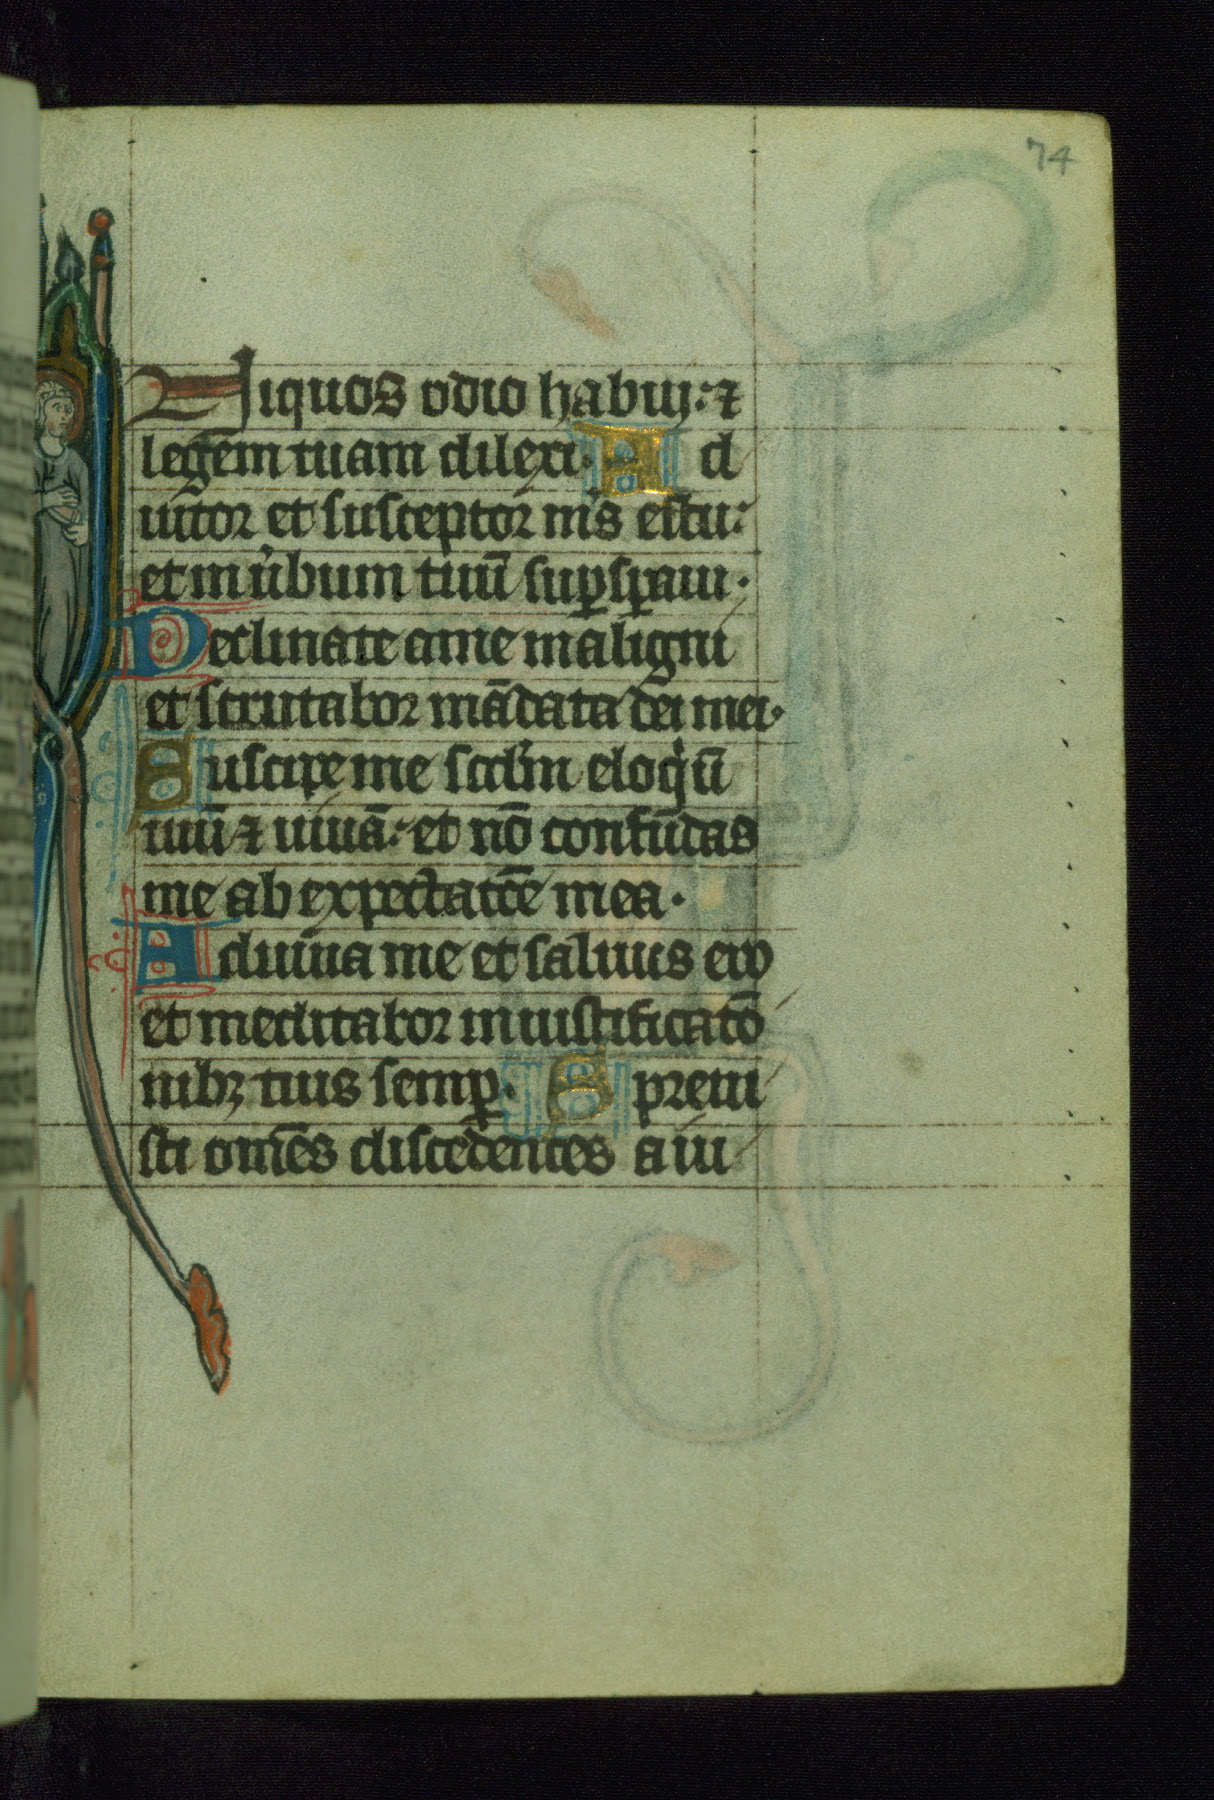 74
Niquos odio habui: ⁊
legem tuam dilexi. A d
iutor et susceptor m̅s es tu:
et in u̅bum tuu̅ sup̱sp̱aui.
Declinate a me maligni
et scrutabor ma̅data dei mei.
Suscipe me scd̅m eloqiu̅
tuu̅ ⁊ uiua̅: et no̅ confu̅das
me ab expectatc̅e mea.
Adiuua me et saluus ero
et meditabor in iustificatio̅
nibꝫ tuis semp̱. S preui
sti om̅es discedentes a iu